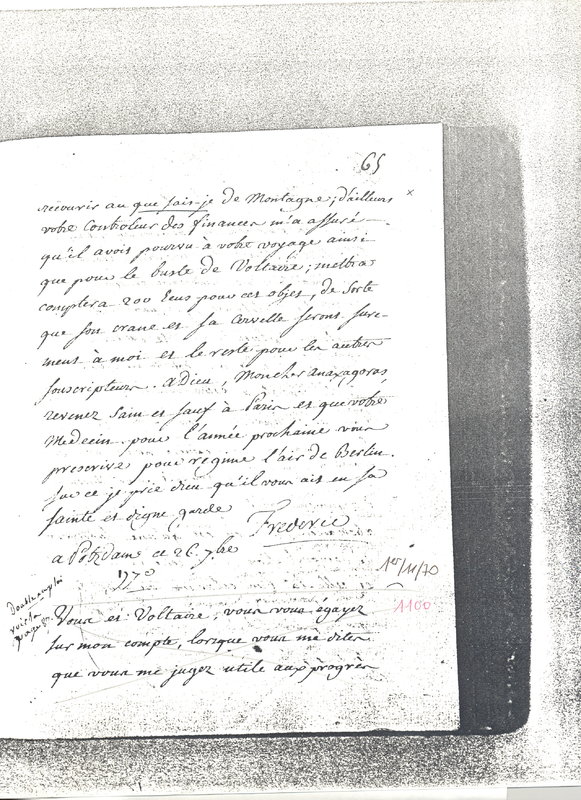 65
recourir au que sais-je de Montagne; d'ailleurs ×
votre Controleur des finances m'a assuré
qu'il avoit pourvu à votre voyage ainsi
que pour le buste de Voltaire; mettra
comptera 200 Ecus pour cet objet, de sorte
que son crane et sa cervelle seront sure-
ment à moi et le reste pour les autres
souscripteurs. adieu, Moncher anaxagoras
revenez sain et sauf à Paris et que votre
Medecin pour l'année prochaine vous
prescrive pour régime l'air de Berlin.
sur ce je prie dieu qu'il vous ait en sa
sainte et digne garde
Frederic
a Potzdam ce 26 7bre
1770
1er/11/70
1100
Double emploi
Vous et Voltaire, vous vous égayez
sur mon compte, lorsque vous me dites
que vous me jugez utile aux progrès